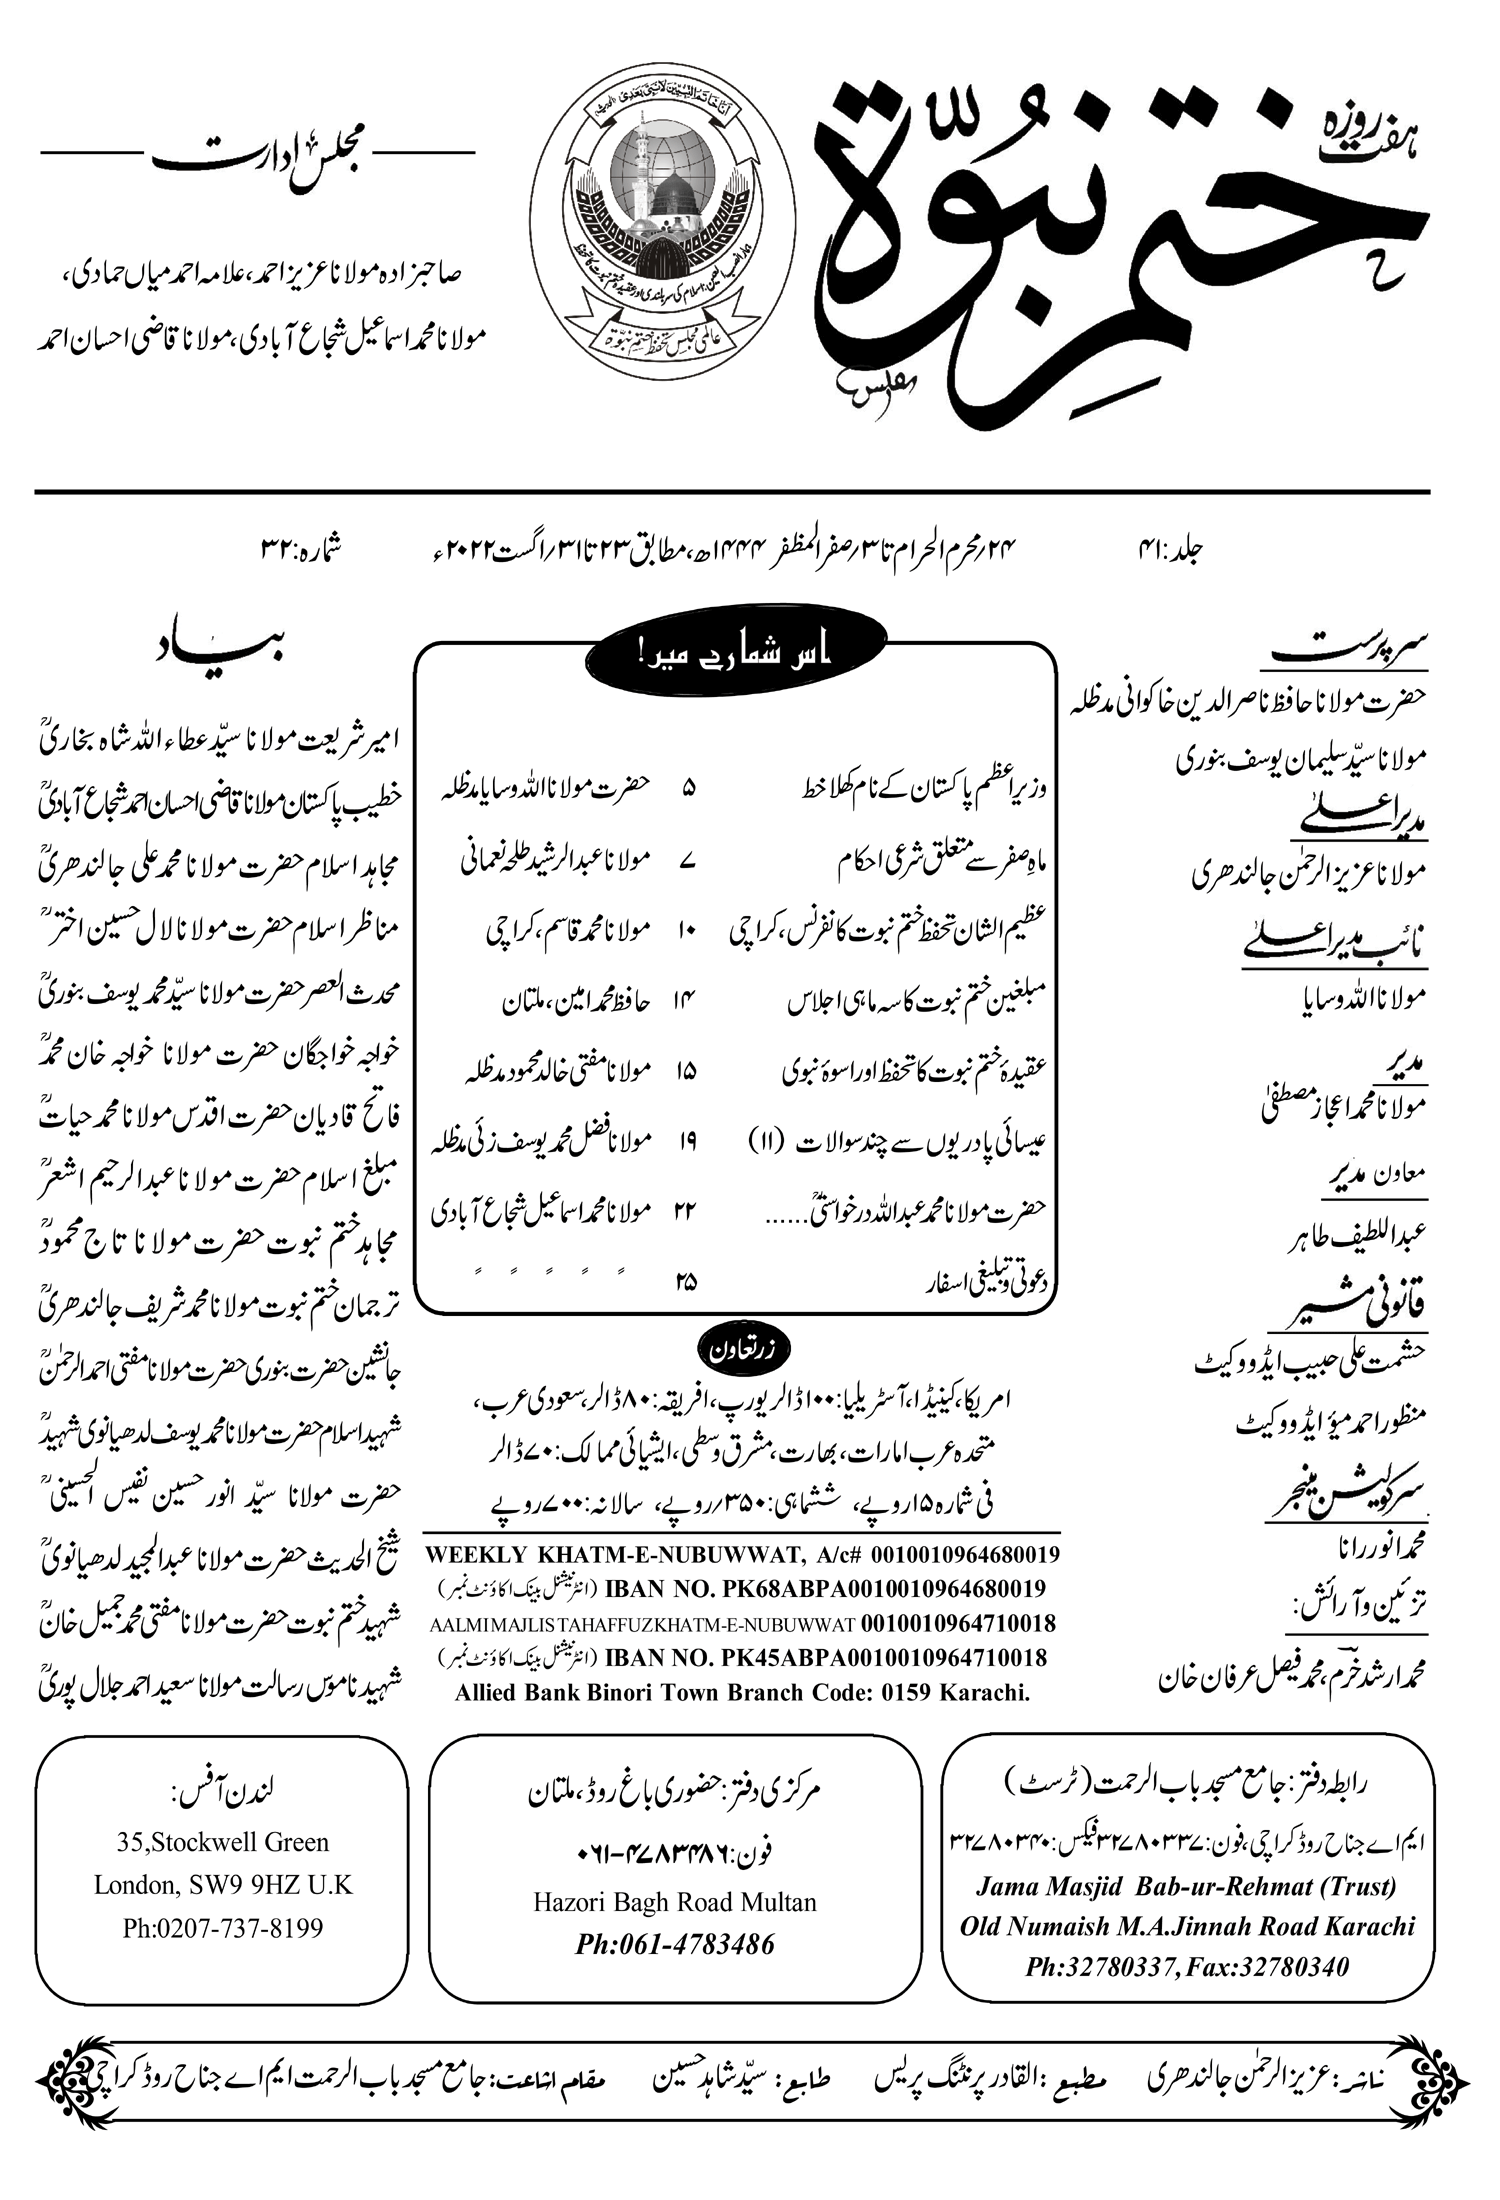 ہفت روزہ
ختم نبوّۃ
انا خاتم النبیین لا نبی بعدی
عالمی مجلس تحفظ ختم نبوّۃ
مجلس ادارت
صاحبزادہ مولانا عزیز احمد، علامہ احمد میاں حمادی،
مولانا محمد اسماعیل شجاع آبادی، مولانا قاضی احسان احمد
جلد: ۴۱
۲۴؍محرم الحرام تا ۳؍صفر المظفر ۱۴۴۴ھ، مطابق ۲۳ تا ۳۱؍اگست ۲۰۲۲ء
شمارہ: ۳۲
سرپرست
حضرت مولانا حافظ ناصر الدین خاکوانی مدظلہ
مولانا سیّد سلیمان یوسف بنوری
مدیر اعلےٰ
مولانا عزیز الرحمٰن جالندھری
نائب مدیر اعلےٰ
مولانا اللہ وسایا
مدیر
مولانا محمد اعجاز مصطفیٰ
معاون مدیر
عبداللطیف طاہر
قانونی مشیر
حشمت علی حبیب ایڈووکیٹ
منظور احمد میؤ ایڈووکیٹ
سرکولیشن مینجر
محمد انور رانا
تزئین و آرائش:
محمد ارشد خرم، محمد فیصل عرفان خان
اس شمارے میں!
وزیراعظم پاکستان کے نام کھلا خط ۵ حضرت مولانا اللہ وسایا مدظلہ
ماہِ صفر سے متعلق شرعی احکام ۷ مولانا عبدالرشید طلحہ نعمانی
عظیم الشان تحفظ ختم نبوت کانفرنس، کراچی ۱۰ مولانا محمد قاسم، کراچی
مبلغین ختم نبوت کا سہ ماہی اجلاس ۱۴ حافظ محمد امین، ملتان
عقیدۂ ختم نبوت کا تحفظ اور اسوۂ نبوی ۱۵ مولانا مفتی خالد محمود مدظلہ
عیسائی پادریوں سے چند سوالات (۱۱) ۱۹ مولانا فضل محمد یوسف زئی مدظلہ
حضرت مولانا محمد عبداللہ درخواستیؒ...... ۲۲ مولانا محمد اسماعیل شجاع آبادی
دعوتی و تبلیغی اسفار ۲۵ ً ً ً ً ً
زرتعاون
امریکا، کینیڈا، آسٹریلیا: ۱۰۰ ڈالر یورپ، افریقہ: ۸۰ ڈالر، سعودی عرب،
متحدہ عرب امارات، بھارت، مشرق وسطی، ایشیائی ممالک: ۷۰ ڈالر
فی شمارہ ۱۵ روپے، ششماہی: ۳۵۰؍روپے، سالانہ: ۷۰۰ روپے
WEEKLY KHATM-E-NUBUWWAT, A/c# 0010010964680019
IBAN NO. PK68ABPA0010010964680019 (انٹرنیشنل بینک اکاؤنٹ نمبر)
AALMI MAJLIS TAHAFFUZ KHATM-E-NUBUWWAT 0010010964710018
IBAN NO. PK45ABPA0010010964710018 (انٹرنیشنل بینک اکاؤنٹ نمبر)
Allied Bank Binori Town Branch Code: 0159 Karachi.
بیاد
امیر شریعت مولانا سیّد عطاء اللہ شاہ بخاریؒ
خطیب پاکستان مولانا قاضی احسان احمد شجاع آبادیؒ
مجاہد اسلام حضرت مولانا محمد علی جالندھریؒ
مناظر اسلام حضرت مولانا لال حسین اخترؒ
محدث العصر حضرت مولانا سیّد محمد یوسف بنوریؒ
خواجہ خواجگان حضرت مولانا خواجہ خان محمدؒ
فاتح قادیان حضرت اقدس مولانا محمد حیاتؒ
مبلغ اسلام حضرت مولانا عبدالرحیم اشعرؒ
مجاہد ختم نبوت حضرت مولانا تاج محمودؒ
ترجمان ختم نبوت مولانا محمد شریف جالندھریؒ
جانشین حضرت بنوری حضرت مولانا مفتی احمد الرحمٰنؒ
شہید اسلام حضرت مولانا محمد یوسف لدھیانوی شہیدؒ
حضرت مولانا سیّد انور حسین نفیس الحسینیؒ
شیخ الحدیث حضرت مولانا عبدالمجید لدھیانویؒ
شہید ختم نبوت حضرت مولانا مفتی محمد جمیل خانؒ
شہید ناموس رسالت مولانا سعید احمد جلال پوریؒ
رابطہ دفتر: جامع مسجد باب الرحمت (ٹرسٹ)
ایم اے جناح روڈ کراچی، فون: ۳۲۷۸۰۳۳۷ فیکس: ۳۲۷۸۰۳۴۰
Jama Masjid Bab-ur-Rehmat (Trust)
Old Numaish M.A.Jinnah Road Karachi
Ph:32780337, Fax:32780340
مرکزی دفتر: حضوری باغ روڈ، ملتان
فون: ۰۶۱-۴۷۸۳۴۸۶
Hazori Bagh Road Multan
Ph:061-4783486
لندن آفس:
35,Stockwell Green
London, SW9 9HZ U.K
Ph:0207-737-8199
ناشر: عزیز الرحمٰن جالندھری مطبع: القادر پرنٹنگ پریس طابع: سیّد شاہد حسین مقام اشاعت: جامع مسجد باب الرحمت ایم اے جناح روڈ کراچی